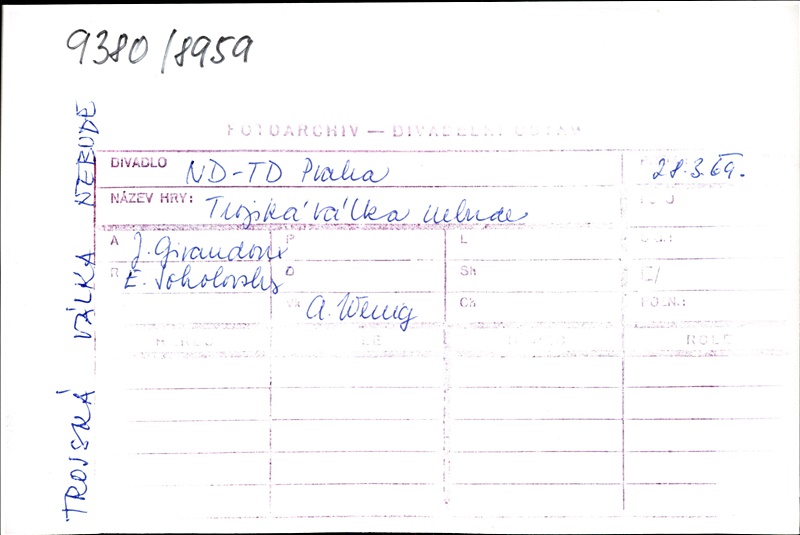 9380/8959
TROJSKÁ VÁLKA NEBUDE
FOTOARCHIV — DIVADELNÍ ÚSTAV
DIVADLO ND-TD Praha 28.3.69.
NÁZEV HRY: Trojská válka nebude
A J. Giraudoux P L
R E. Sokolovský O Sh C/
Vk A. Wenig Ch POLN.:
ROLE